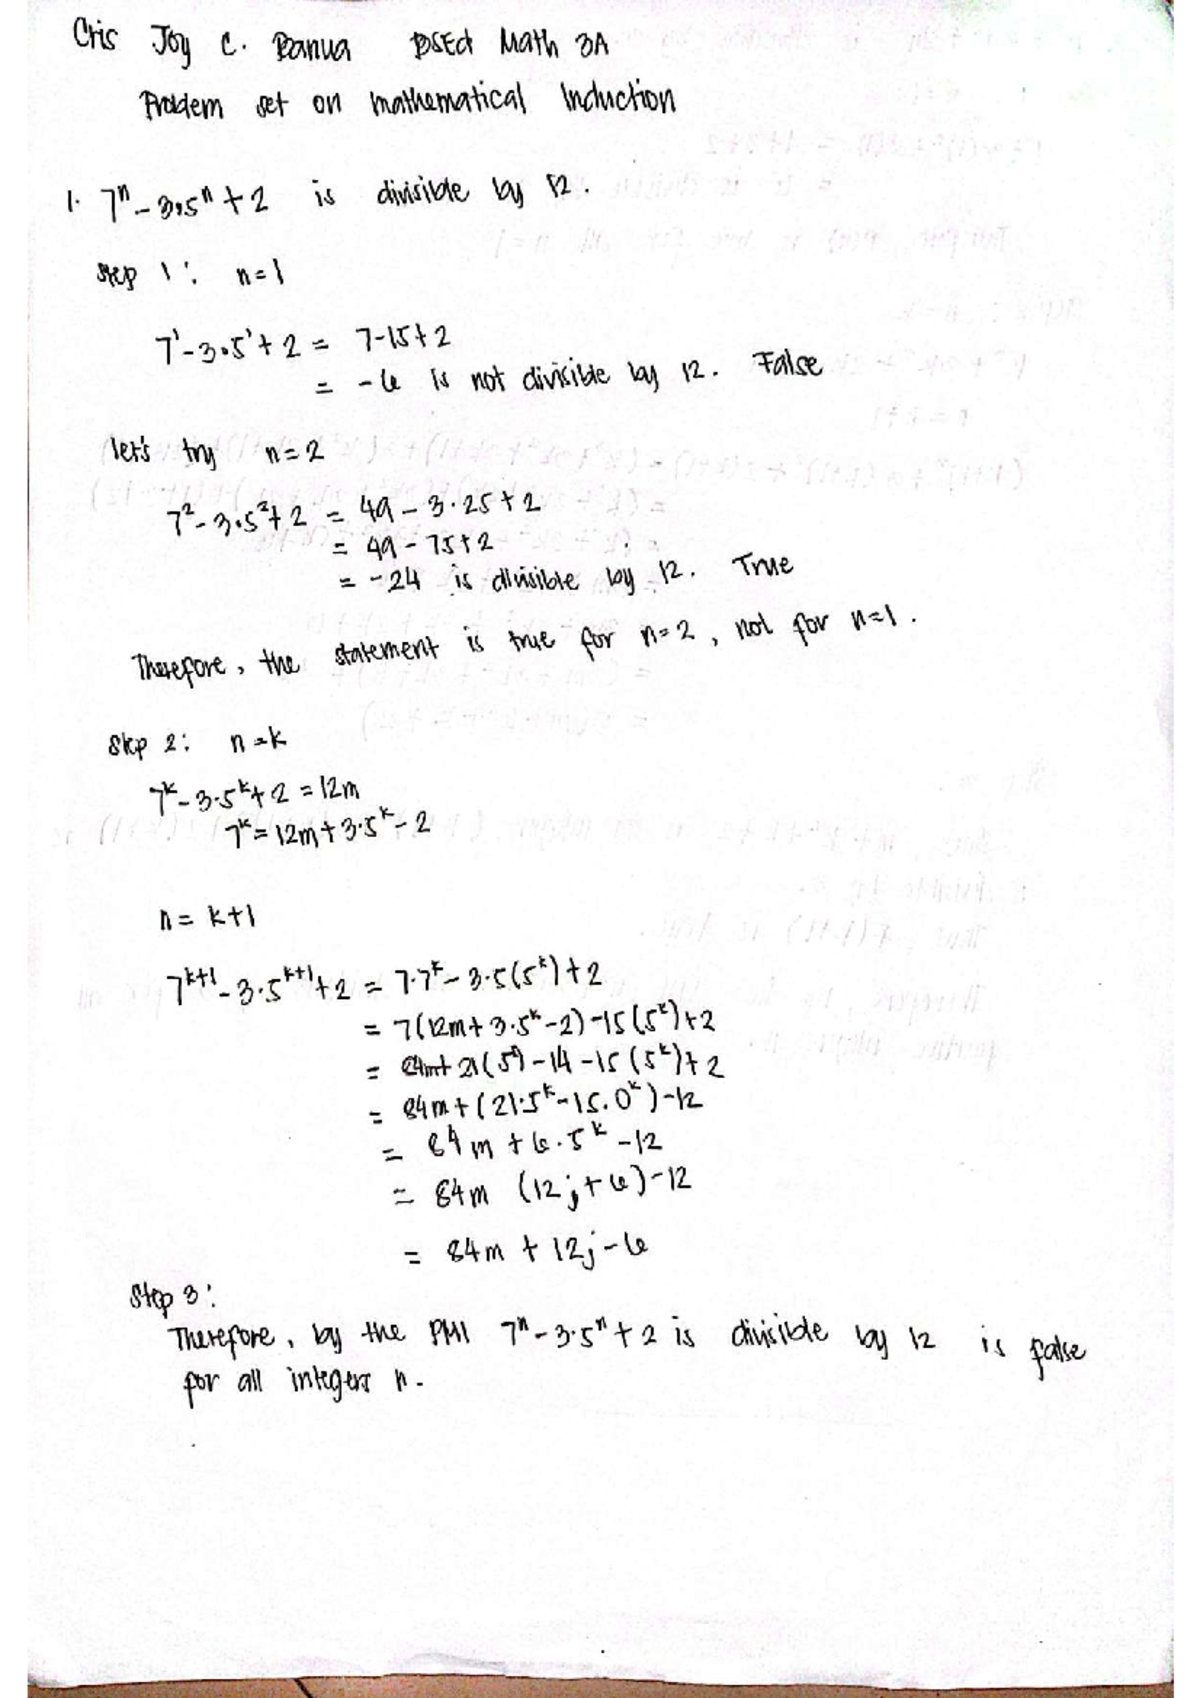 Cris Joy C. Banua BSEd Math 3A
Problem set on mathematical Induction
1. 7ⁿ - 3·5ⁿ + 2 is divisible by 12.
Step 1: n=1
7¹-3·5¹+2 = 7-15+2
= -6 is not divisible by 12. False
let's try n=2
7²-3·5²+2 = 49-3·25+2
= 49-75+2
= -24 is divisible by 12. True
Therefore, the statement is true for n=2, not for n=1.
Step 2: n=k
7ᵏ-3·5ᵏ+2 = 12m
7ᵏ = 12m+3·5ᵏ-2
n = k+1
7ᵏ⁺¹-3·5ᵏ⁺¹+2 = 7·7ᵏ-3·5(5ᵏ)+2
= 7(12m+3·5ᵏ-2)-15(5ᵏ)+2
= 84m+21(5ᵏ)-14-15(5ᵏ)+2
= 84m+(21·5ᵏ-15.0ᵏ)-12
= 84m+6·5ᵏ-12
= 84m (12j+6)-12
= 84m + 12j-6
Step 3:
Therefore, by the PMI 7ⁿ-3·5ⁿ+2 is divisible by 12 is false
for all integers n.